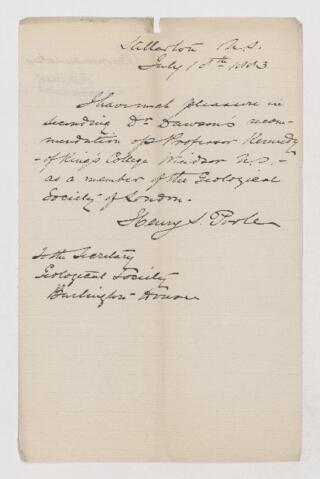 Stellarton N.S.
July 18th 1883
I have much pleasure in
seconding Dr Dawson's recom-
mendation of Professor Kennedy
- of King's College Windsor N.S. -
as a member of the Geological
Society of London -
Henry S. Poole
To the Secretary
Geological Society
Burlington House